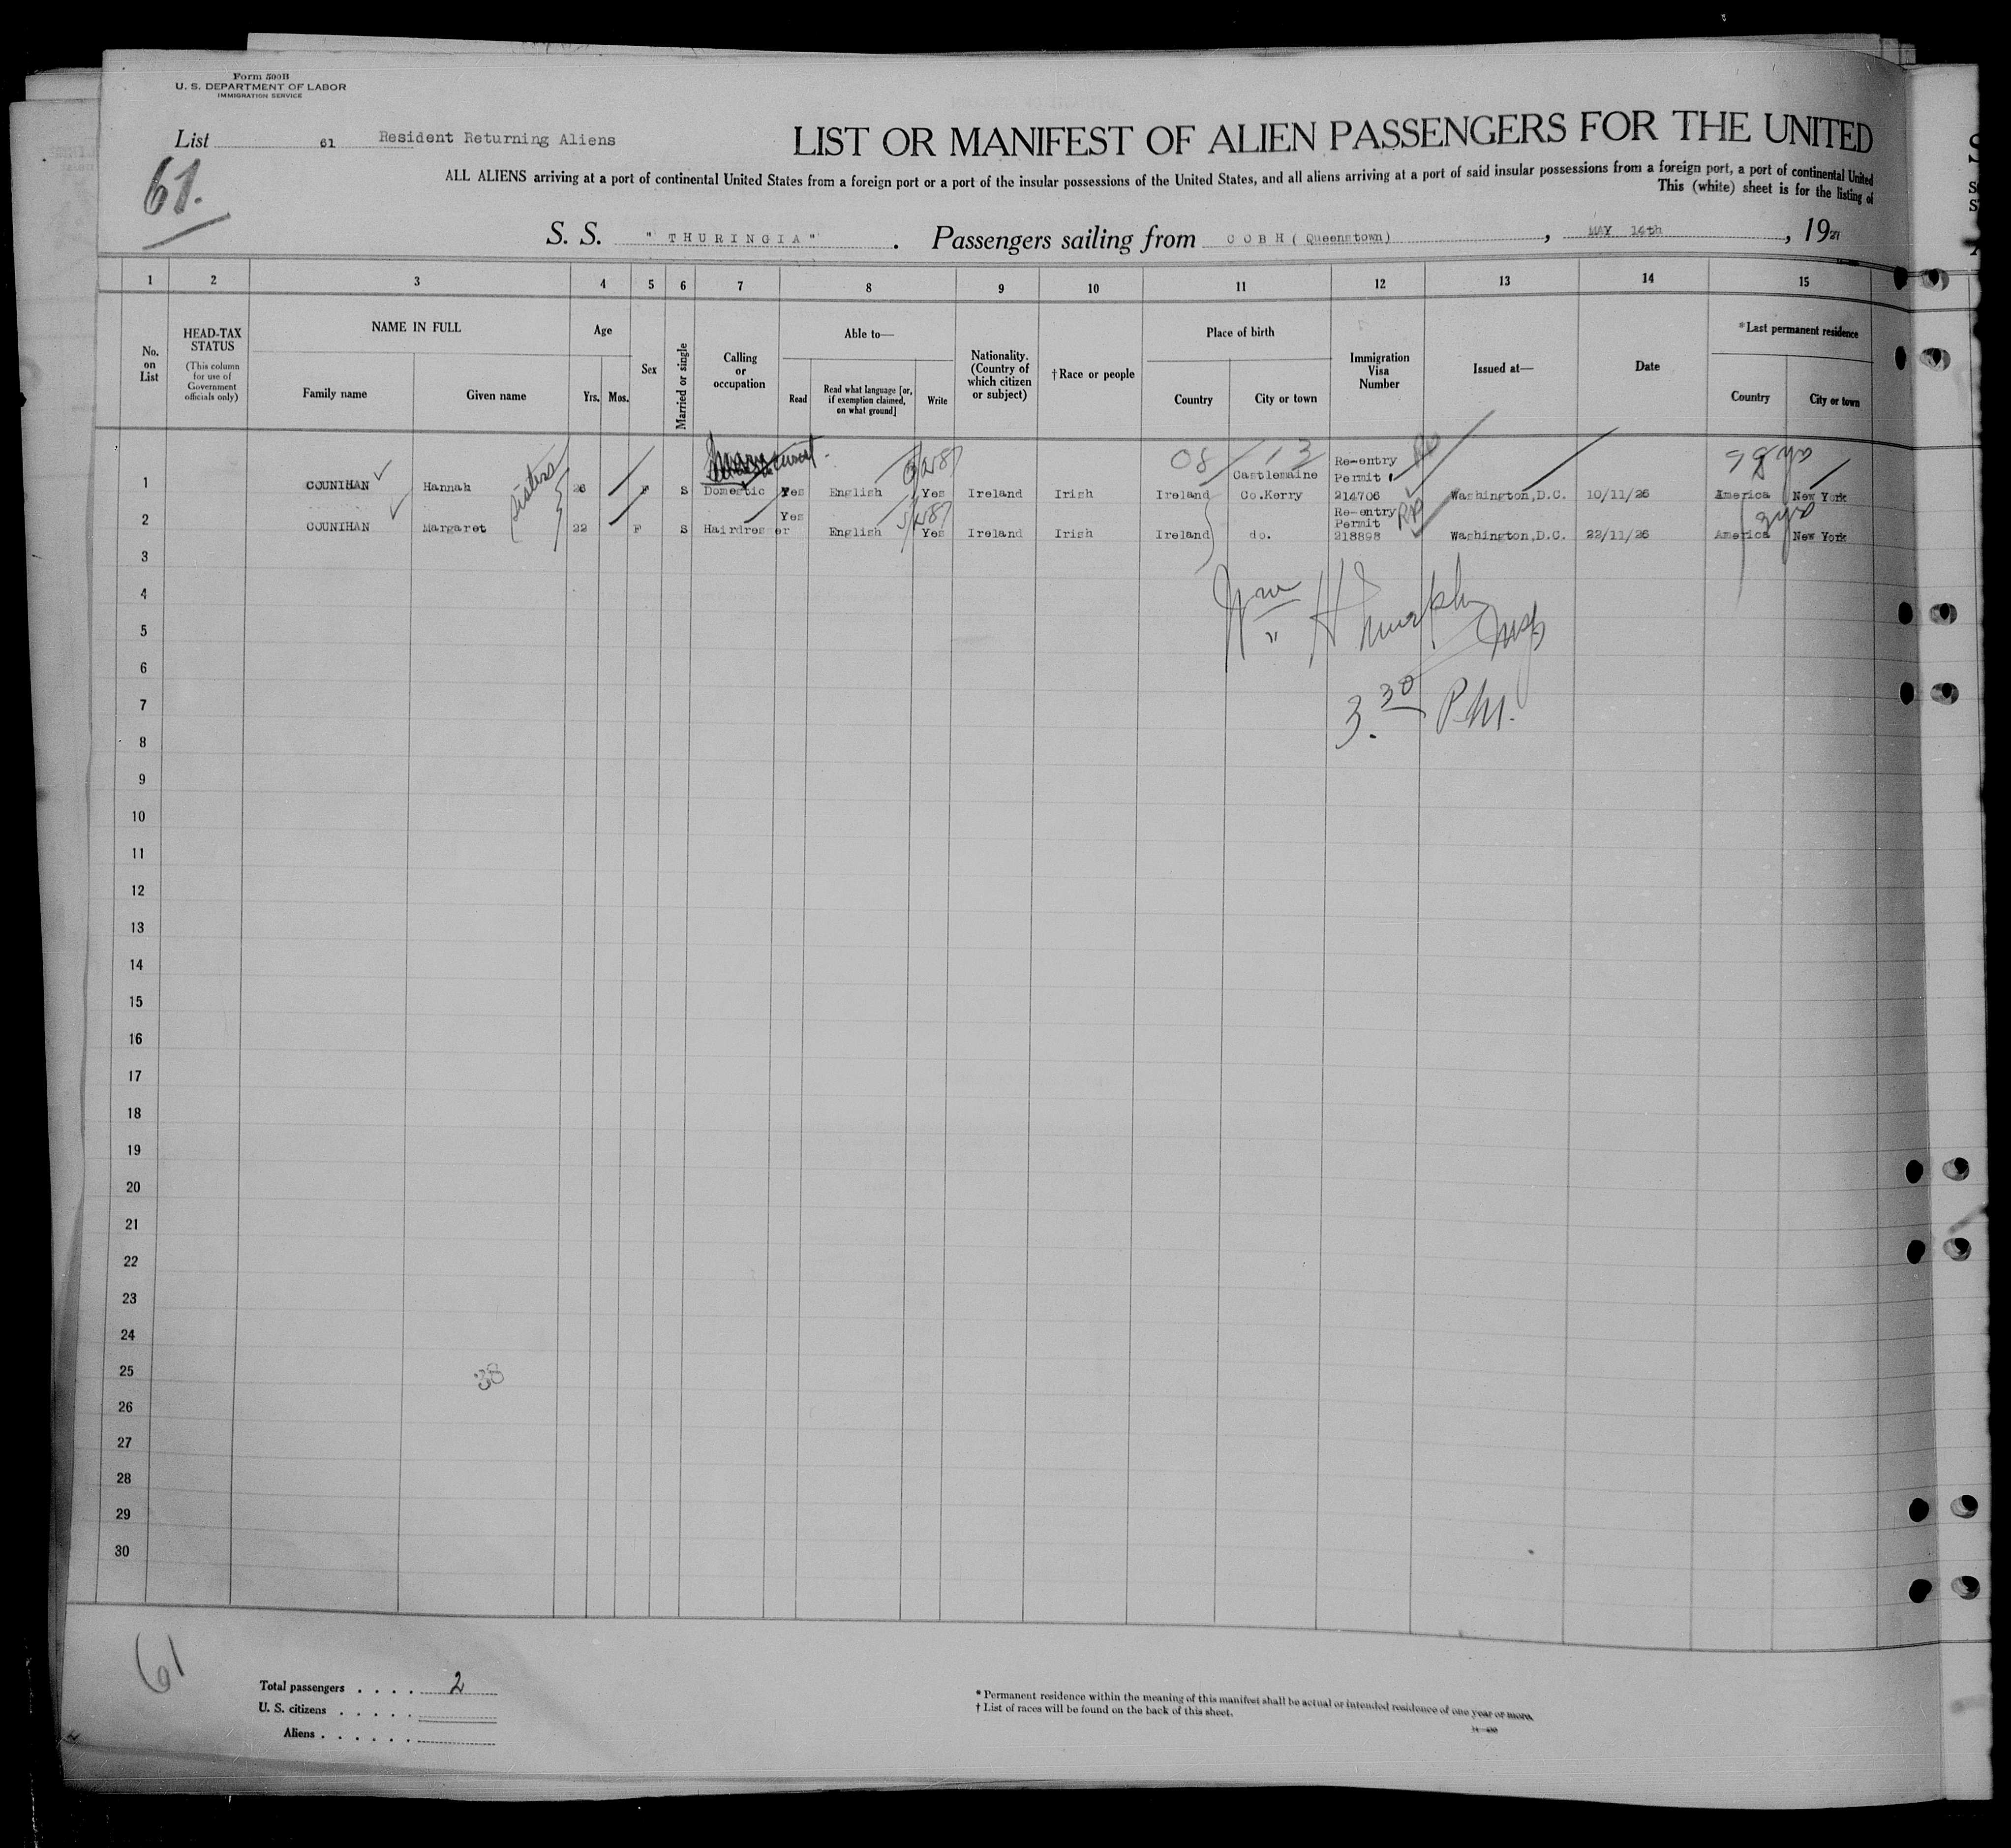 Form 500B
U. S. DEPARTMENT OF LABOR
IMMIGRATION SERVICE
List 61 Resident Returning Aliens
61.
LIST OR MANIFEST OF ALIEN PASSENGERS FOR THE UNITED
ALL ALIENS arriving at a port of continental United States from a foreign port or a port of the insular possessions of the United States, and all aliens arriving at a port of said insular possessions from a foreign port, a port of continental United
This (white) sheet is for the listing of
S. S. "THURINGIA". Passengers sailing from COBH (Queenstown), MAY 14th, 1927
1 2 3 4 5 6 7 8 9 10 11 12 13 14 15
No. on List
HEAD-TAX STATUS
(This column for use of Government officials only)
NAME IN FULL
Family name Given name
Age
Yrs. Mos.
Sex
Married or single
Calling or occupation
Able to—
Read
Read what language [or, if exemption claimed, on what ground]
Write
Nationality. (Country of which citizen or subject)
†Race or people
Place of birth
Country City or town
Immigration Visa Number
Issued at—
Date
*Last permanent residence
Country City or town
1 COUNIHAN Hannah 26 F S Domestic Yes English Yes Ireland Irish Ireland Castlemaine Co.Kerry Re-entry Permit 214706 Washington,D.C. 10/11/26 America New York
sisters
08 13
2 COUNIHAN Margaret 22 F S Hairdresser Yes English Yes Ireland Irish Ireland do. Re-entry Permit 218898 Washington,D.C. 22/11/26 America New York
3
4
5
6
7
8
9
10
11
12
13
14
15
16
17
18
19
20
21
22
23
24
25
26
27
28
29
30
Wm H Murphy Insp
3.30 P.M.
38
61
Total passengers . . . . 2
U. S. citizens . . . . .
Aliens . . . . . .
* Permanent residence within the meaning of this manifest shall be actual or intended residence of one year or more.
† List of races will be found on the back of this sheet.